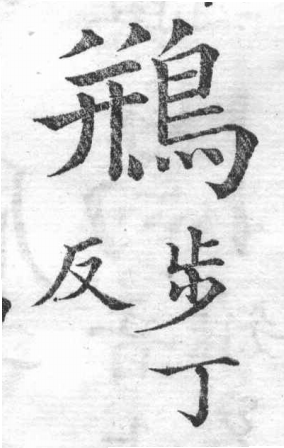 鵧
步丁
反